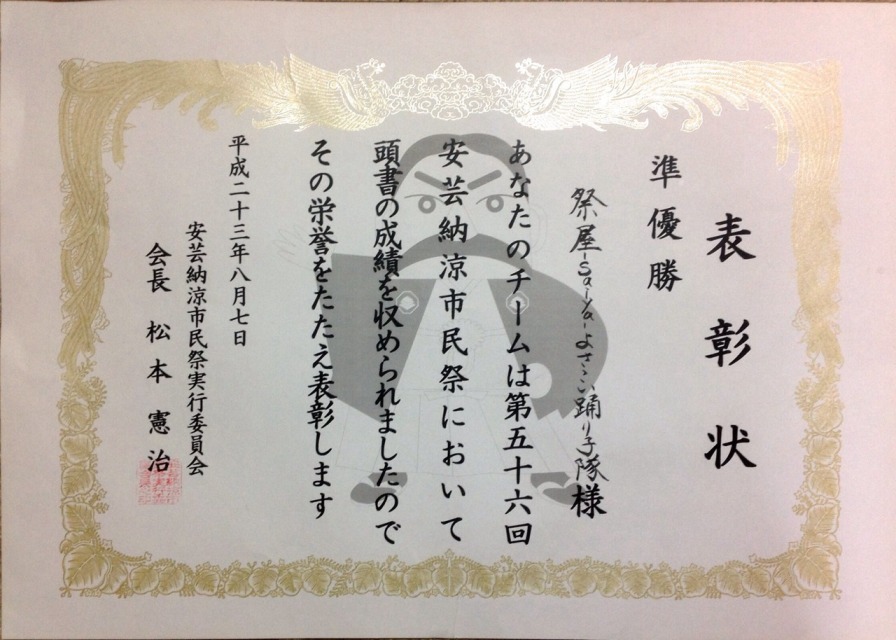 表彰状
準優勝
祭屋-Saiya-よさこい踊り子隊様
あなたのチームは第五十六回
安芸納涼市民祭において
頭書の成績を収められましたので
その栄誉をたたえ表彰します
平成二十三年八月七日
安芸納涼市民祭実行委員会
会長 松本憲治